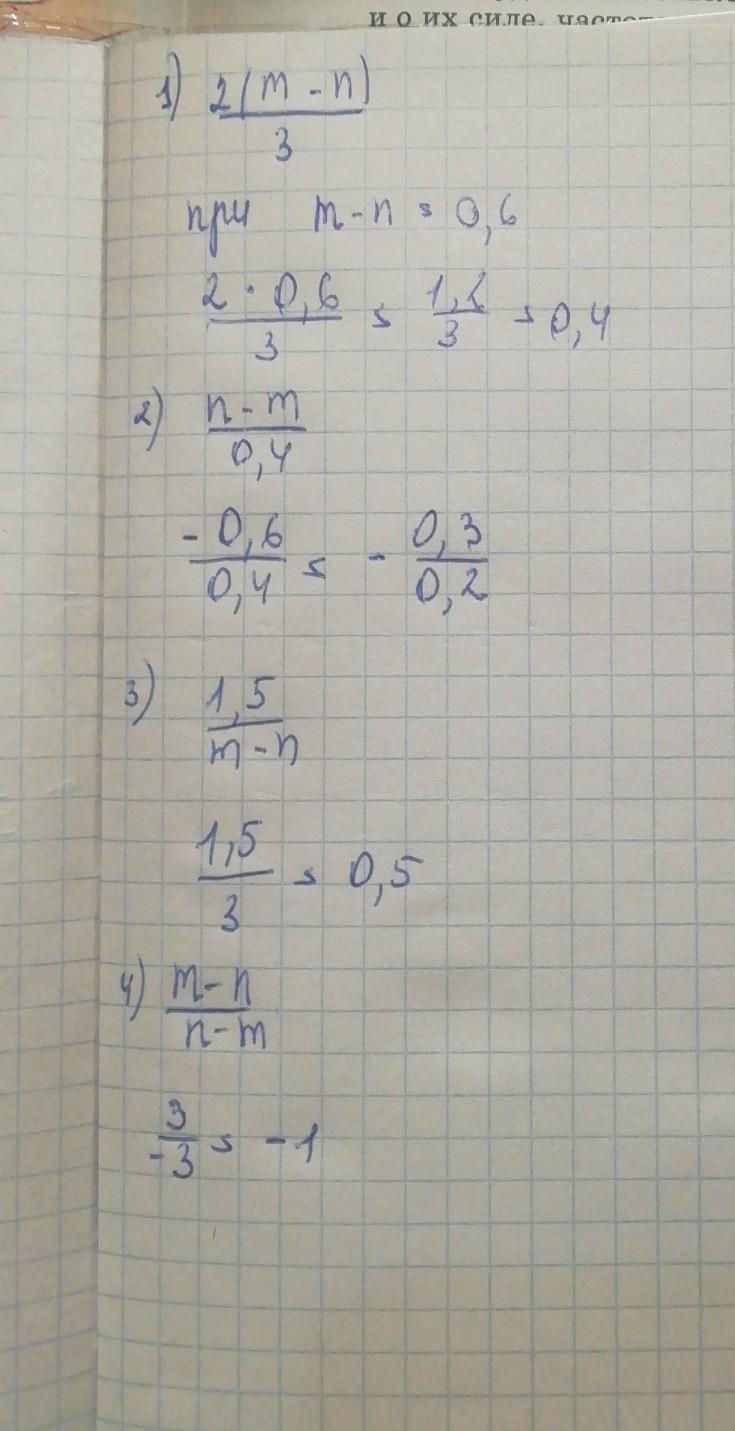 и о их силе, частот
1) 2(m - n)
3
при m - n = 0,6
2 · 0,6 = 1,2 = 0,4
3 3
2) n - m
0,4
- 0,6 = - 0,3
0,4 0,2
3) 1,5
m - n
1,5 = 0,5
3
4) m - n
n - m
3 = - 1
-3